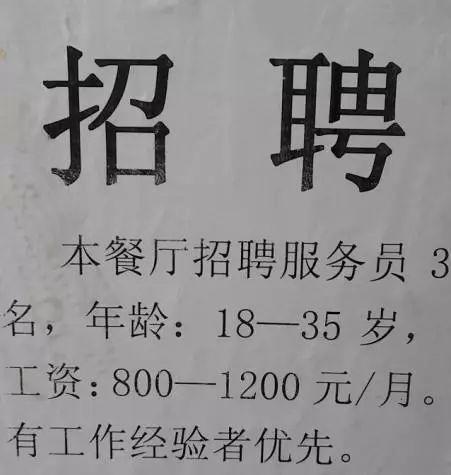 招聘
本餐厅招聘服务员 3
名，年龄：18—35 岁，
工资：800—1200 元/月。
有工作经验者优先。